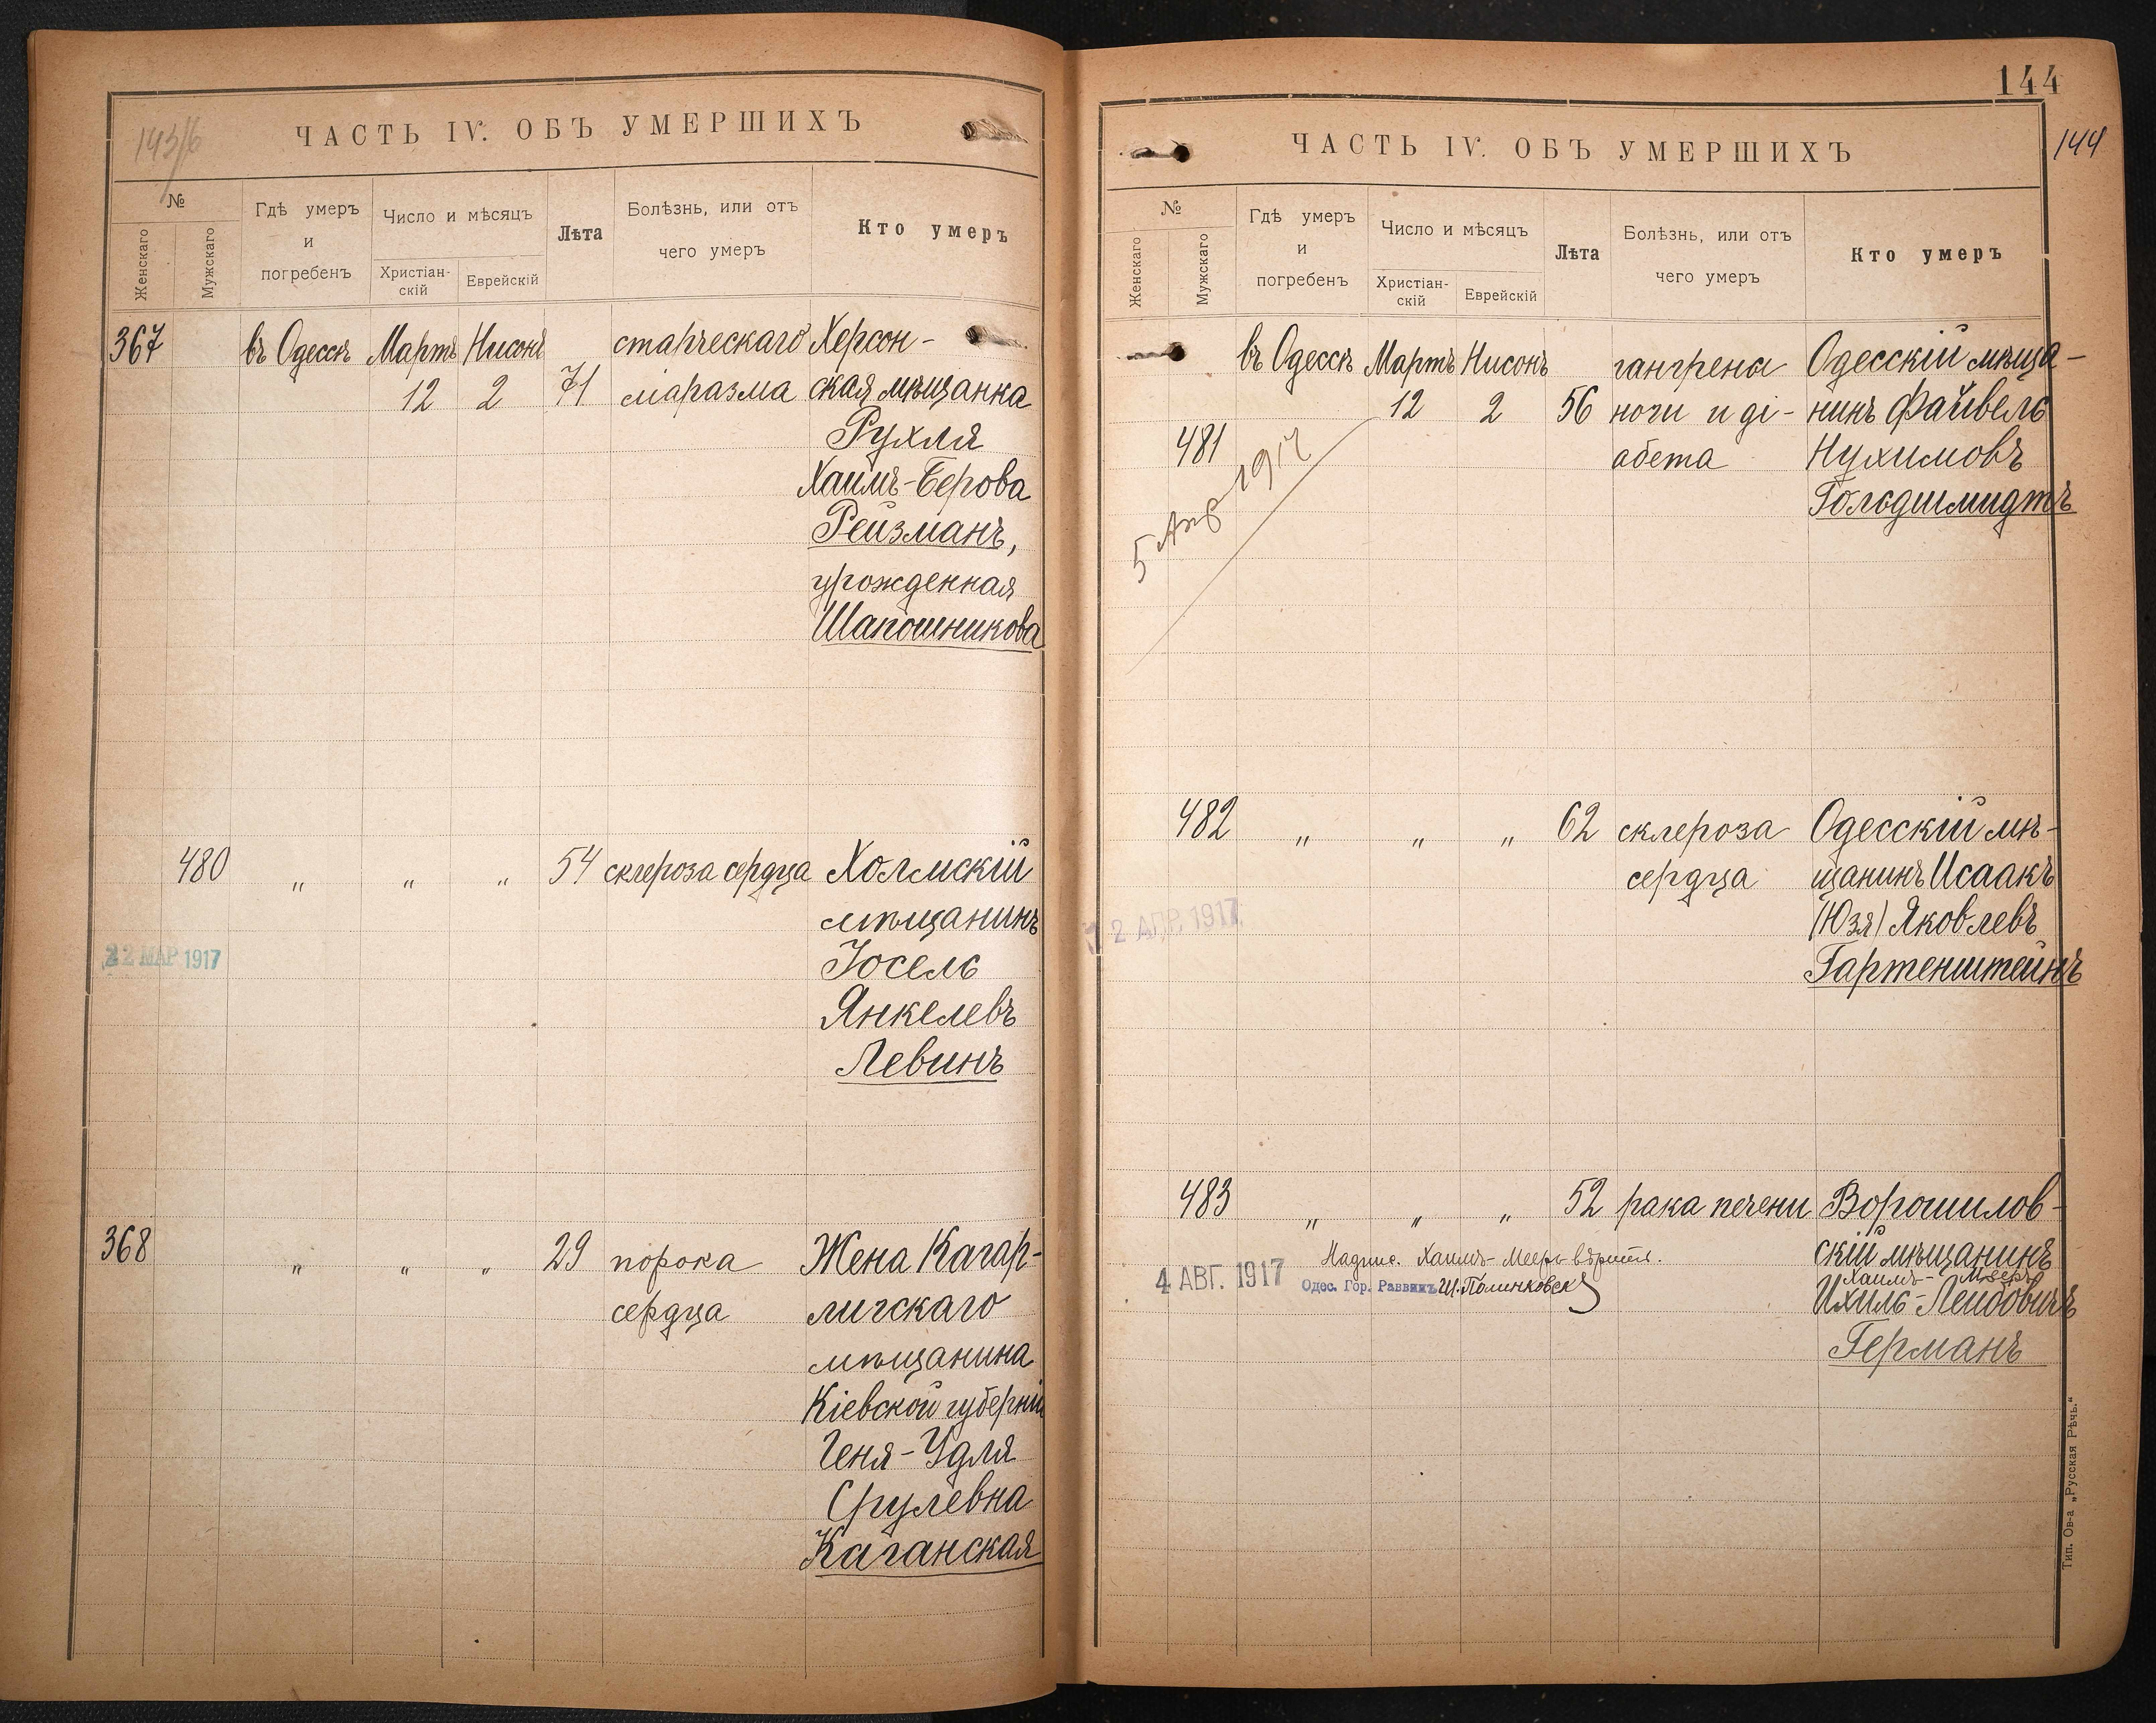 ЧАСТЬ IV. ОБЪ УМЕРШИХЪ
№
Женскаго
Мужскаго
Гдѣ умеръ
и
погребенъ
Число и мѣсяцъ
Христіан-
скій
Еврейскій
Лѣта
Болѣзнь, или отъ
чего умеръ
Кто умеръ
367 въ Одессѣ Мартъ Нисонъ старческаго Херсон-
12 2 71 маразма ская мѣщанка
Рухля
Хаимъ-Берова
Рейзманъ,
урожденная
Шапошникова
480 „ „ „ 54 склероза сердца Холмскій
мѣщанинъ
22 МАР 1917
Іосель
Янкелевъ
Левинъ
368 „ „ „ 29 порока Жена Кагар-
сердца лыкскаго
мѣщанина
Кіевской губерніи
Геня-Удля
Срулевна
Каганская
144
144
ЧАСТЬ IV. ОБЪ УМЕРШИХЪ
№
Женскаго
Мужскаго
Гдѣ умеръ
и
погребенъ
Число и мѣсяцъ
Христіан-
скій
Еврейскій
Лѣта
Болѣзнь, или отъ
чего умеръ
Кто умеръ
въ Одессѣ Мартъ Нисонъ гангрена Одесскій мѣща-
12 2 56 ноги и ді- нинъ Файвель
481 абета Нухимовъ
Гольдшмидтъ
5 Апр 1917
482 „ „ „ 62 склероза Одесскій мѣ-
сердца щанинъ Исаакъ
2 АПР. 1917
(Юзя) Яковлевъ
Гартенштейнъ
483 „ „ „ 52 рака печени Ворошилов-
скій мѣщанинъ
Надпис. Хаимъ-Мееръ вѣрить.
4 АВГ. 1917
Одес. Гор. Раввинъ Ш. Полинковскій
Хаимъ-Мееръ
Ихиль-Лейбовичъ
Германъ
Тип. Ов-а „Русская Рѣчь.“